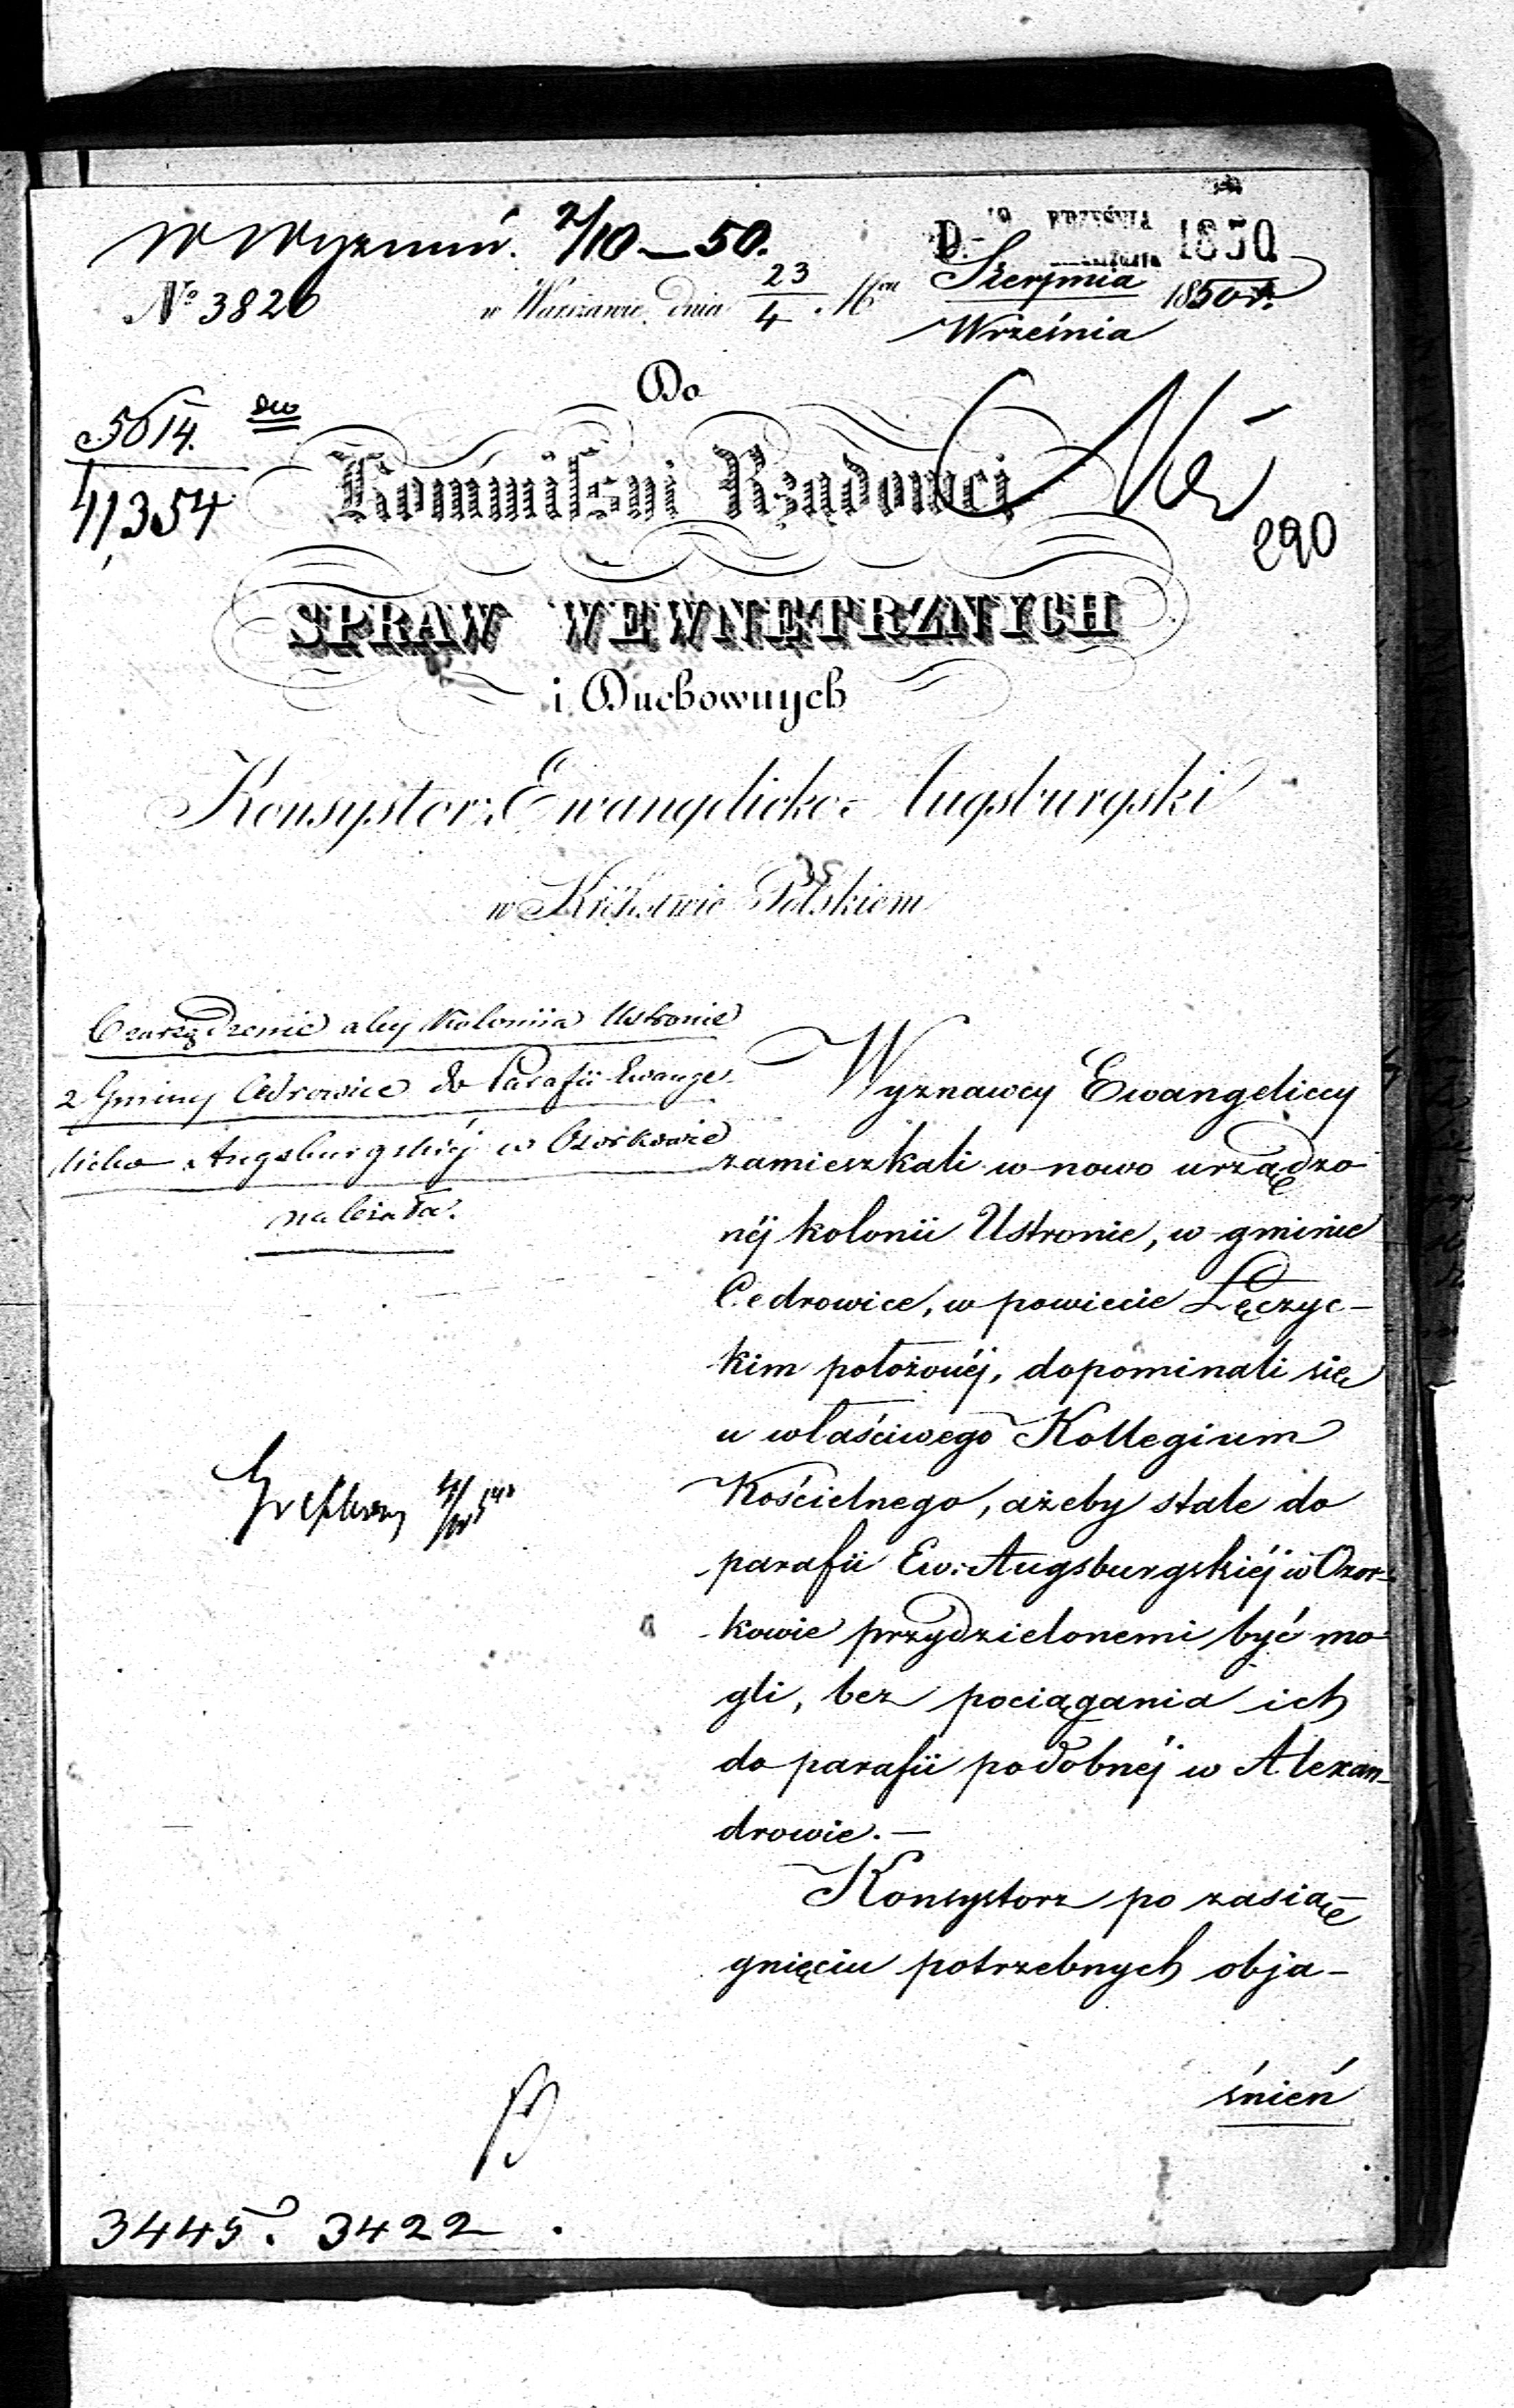 W Wyznań. 2/10 — 50.
D. WRZEŚNIA 1850
№ 3826
w Warszawie dnia 23/4 Sierpnia/Września 1850 r.
Do
5614.
41,354
Kommissyi Rządowéj
290
SPRAW WEWNĘTRZNYCH
i Duchownych
Konsystorz Ewangelicko-Augsburgski
w Królestwie Polskiem
O zarządzenie aby Koloniia Ustronie
z Gminy Cedrowice do Parafii Ewange-
licko Augsburgskiéj w Ozorkowie
należała.
Wyznawcy Ewangeliccy
zamieszkali w nowo urządzo
néj kolonii Ustronie, w gminie
Cedrowice, w powiecie Łęczyc-
kim położonéj, dopominali się
u właściwego Kollegium
Kościelnego, ażeby stale do
parafii Ew: Augsburgskiéj w Ozor-
kowie przydzielonemi być mo
gli, bez pociągania ich
do parafii podobnéj w Alexan-
drowie. —
Konsystorz po zasią-
gnięciu potrzebnych obja-
śnień
3445. 3422